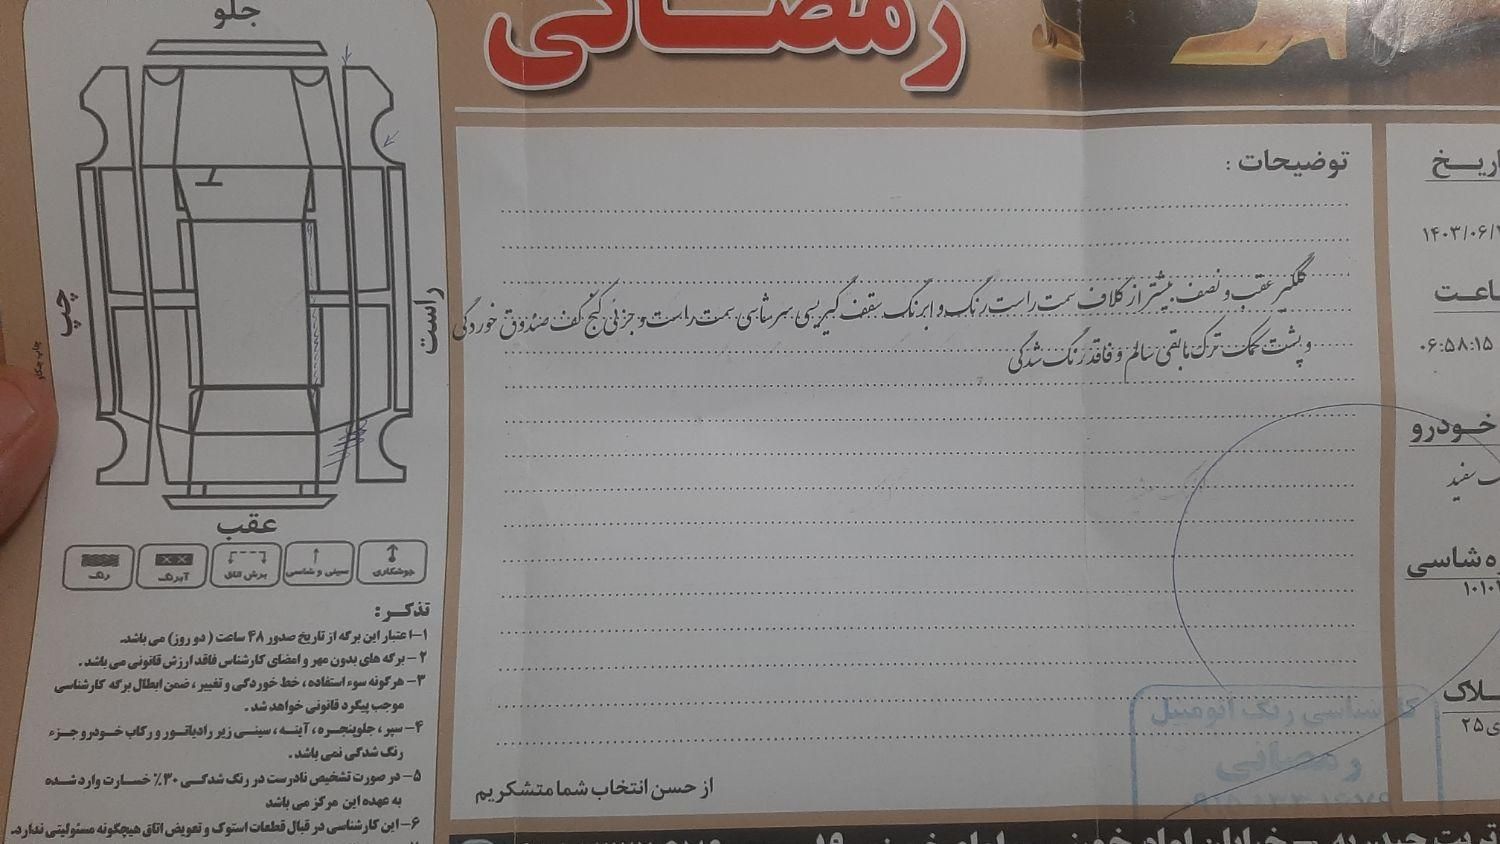 رمضانی
جلو
چپ
راست
عقب
چاپ چکاو
جوشکاری
سینی و شاسی
برش اتاق
آبرنگ
رنگ
تذکر:
۱-اعتبار این برگه از تاریخ صدور ۴۸ ساعت ( دو روز) می باشد.
۲- برگه های بدون مهر و امضای کارشناس فاقد ارزش قانونی می باشد.
۳- هرگونه سوء استفاده، خط خوردگی و تغییر، ضمن ابطال برگه کارشناسی
موجب پیگرد قانونی خواهد شد.
۴- سپر، جلوپنجره، آینه، سینی زیر رادیاتور و رکاب خودرو جزء
رنگ شدگی نمی باشد.
۵- در صورت تشخیص نادرست در رنگ شدگی ۳۰٪ خسارت وارد شده
به عهده این مرکز می باشد
۶- این کارشناسی در قبال قطعات استوک و تعویض اتاق هیچگونه مسئولیتی ندارد.
توضیحات :
گلگیر عقب و نصف بیشتر از کلاف سمت راست رنگ و ابرنگ سقف گیریسی سرشاسی سمت راست و جزئی کنج کف صندوق خوردگی
و پشت کمک ترک مابقی سالم و فاقد رنگ شدگی
از حسن انتخاب شما متشکریم
اریخ
۱۴۰۳/۰۶/
اعت
۰۶:۵۸:۱۵
خودرو
سفید
ه شاسی
۱۰۱۰
لاک
۲۵
کارشناسی رنگ اتومبیل
رمضانی
تربت حیدریه - خیابان امام خمینی